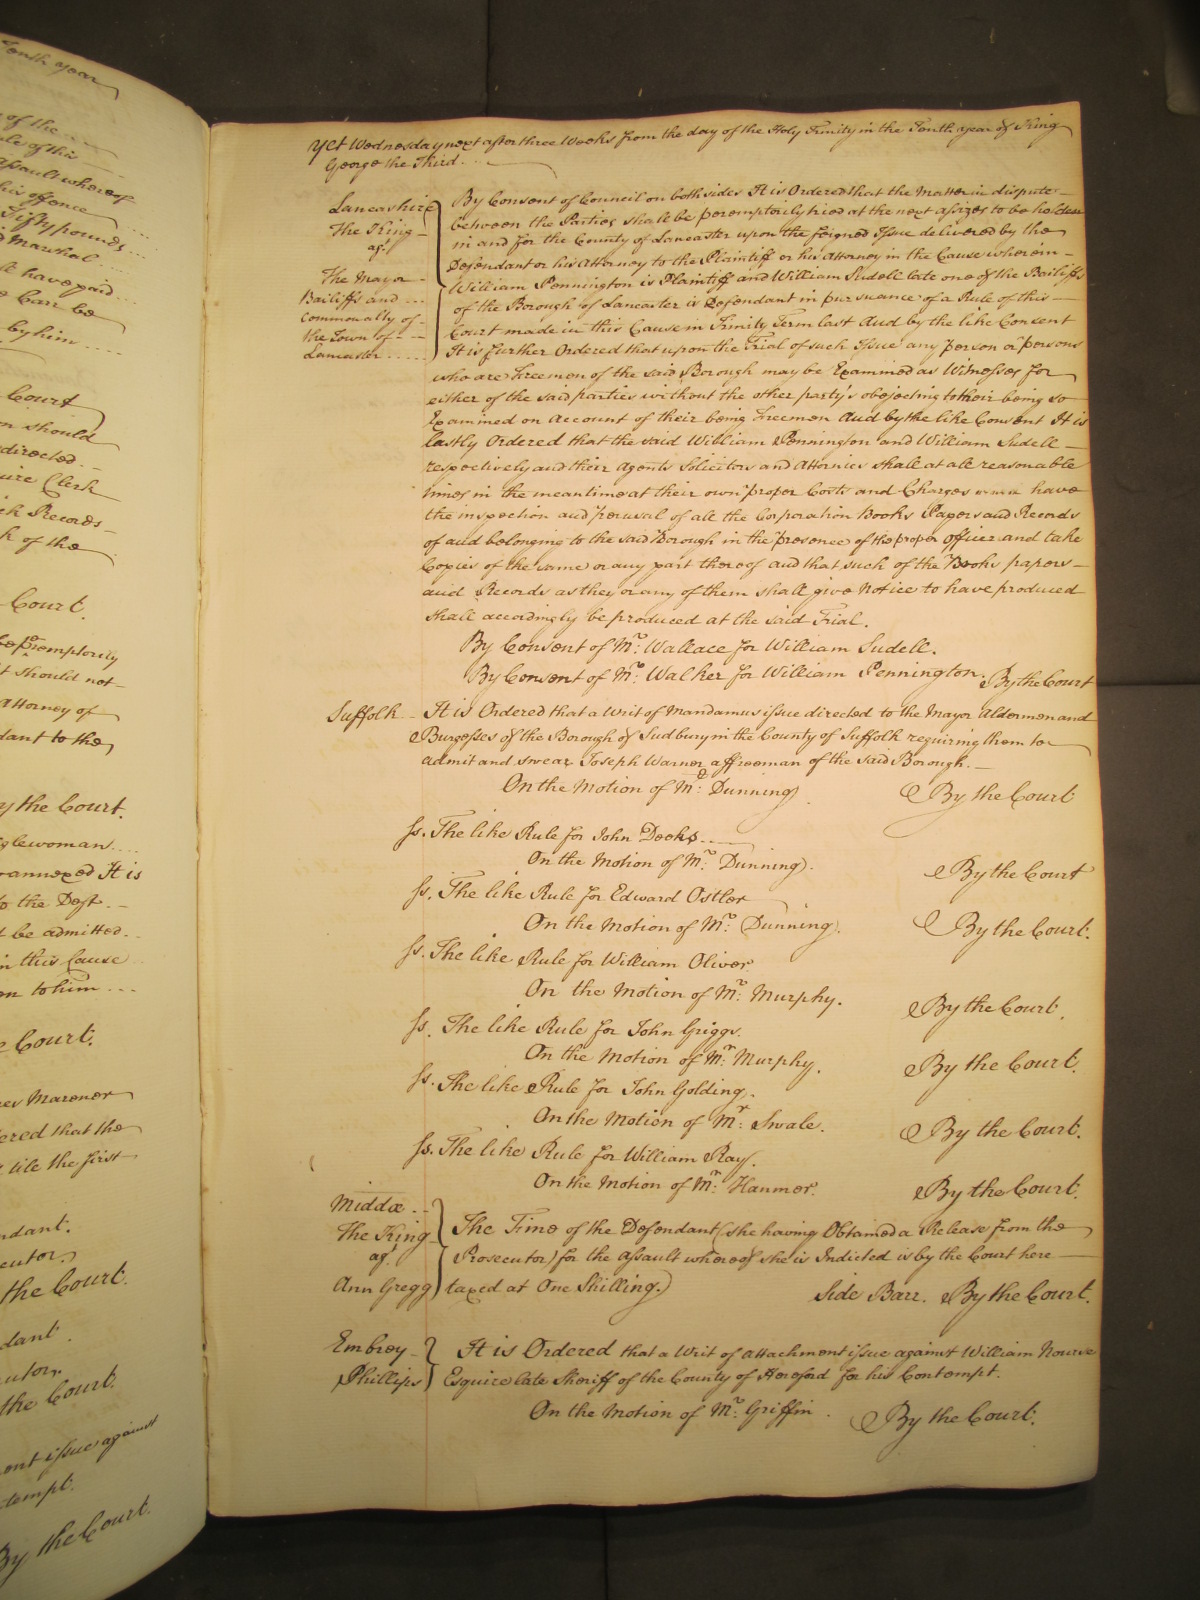 Tenth year
of the
ule of this
assault whereof
his offence
Fifty pounds
Marshal
have paid
Carr be
by him
Court
on should
directed
uire Clerk
ch Records
k of the
Court.
be peremptorily
it should not
Attorney of
dant to the
y the Court.
glewoman
annexed It is
to the Deft.
t be admitted
in this Cause
on to him
e Court.
Marener
ered that the
tile the first
ndant.
ecutor
the Court.
dant.
cutor
the Court.
ent issue against
tempt.
By the Court.
Yet Wednesday next after three Weeks from the day of the Holy Trinity in the Tenth year of King
George the Third.
Lancashire By Consent of Council on both sides It is Ordered that the Matter in dispute
The King between the Parties shall be peremptorily tried at the next assizes to be holden
agt. in and for the County of Lancaster upon the feigned Issue delivered by the
Defendant or his Attorney to the Plaintiff or his Attorney in the Cause wherein
The Mayor William Pennington is Plaintiff and William Sudell late one of the Bailiffs
Bailiffs and of the Borough of Lancaster is Defendant in pursuance of a Rule of this
Commonalty of Court made in this Cause in Trinity Term last And by the like Consent
the Town of
Lancaster It is further Ordered that upon the Trial of such Issue any person or persons
who are Freemen of the said Borough may be Examined as Witnesses for
either of the said parties without the other party's objecting to their being so
Examined on account of their being Freemen And by the like Consent It is
lastly Ordered that the said William Pennington and William Sudell
respectively and their Agents Solicitors and Attornies shall at all reasonable
times in the meantime at their own proper Costs and Charges have
the inspection and perusal of all the Corporation Books Papers and Records
of and belonging to the said Borough in the presence of the proper officer and take
Copies of the same or any part thereof and that such of the Books papers
and Records as they or any of them shall give Notice to have produced
shall accordingly be produced at the said Trial.
By Consent of Mr. Wallace for William Sudell.
By Consent of Mr. Walker for William Pennington. By the Court
Suffolk It is Ordered that a Writ of Mandamus issue directed to the Mayor Aldermen and
Burgesses of the Borough of Sudbury in the County of Suffolk requiring them to
admit and swear Joseph Warner a ffreeman of the said Borough.
On the Motion of Mr. Dunning By the Court
Ss. The like Rule for John Deeks
On the Motion of Mr. Dunning. By the Court
Ss. The like Rule for Edward Ostler
On the Motion of Mr. Dunning. By the Court.
Ss. The like Rule for William Oliver
On the Motion of Mr. Murphy. By the Court.
Ss. The like Rule for John Griggs.
On the Motion of Mr. Murphy. By the Court.
Ss. The like Rule for John Golding.
On the Motion of Mr. Swale. By the Court.
Ss. The like Rule for William Ray.
On the Motion of Mr. Hanmer. By the Court.
Middx
The King The Fine of the Defendant (she having Obtained a Release from the
agt. Prosecutor) for the assault whereof she is Indicted is by the Court here
Ann Gregg taxed at One Shilling. Side Barr. By the Court.
Embrey It is Ordered that a Writ of attachment issue against William Nourse
Phillips Esquire late Sheriff of the County of Hereford for his Contempt.
On the Motion of Mr. Griffin. By the Court.